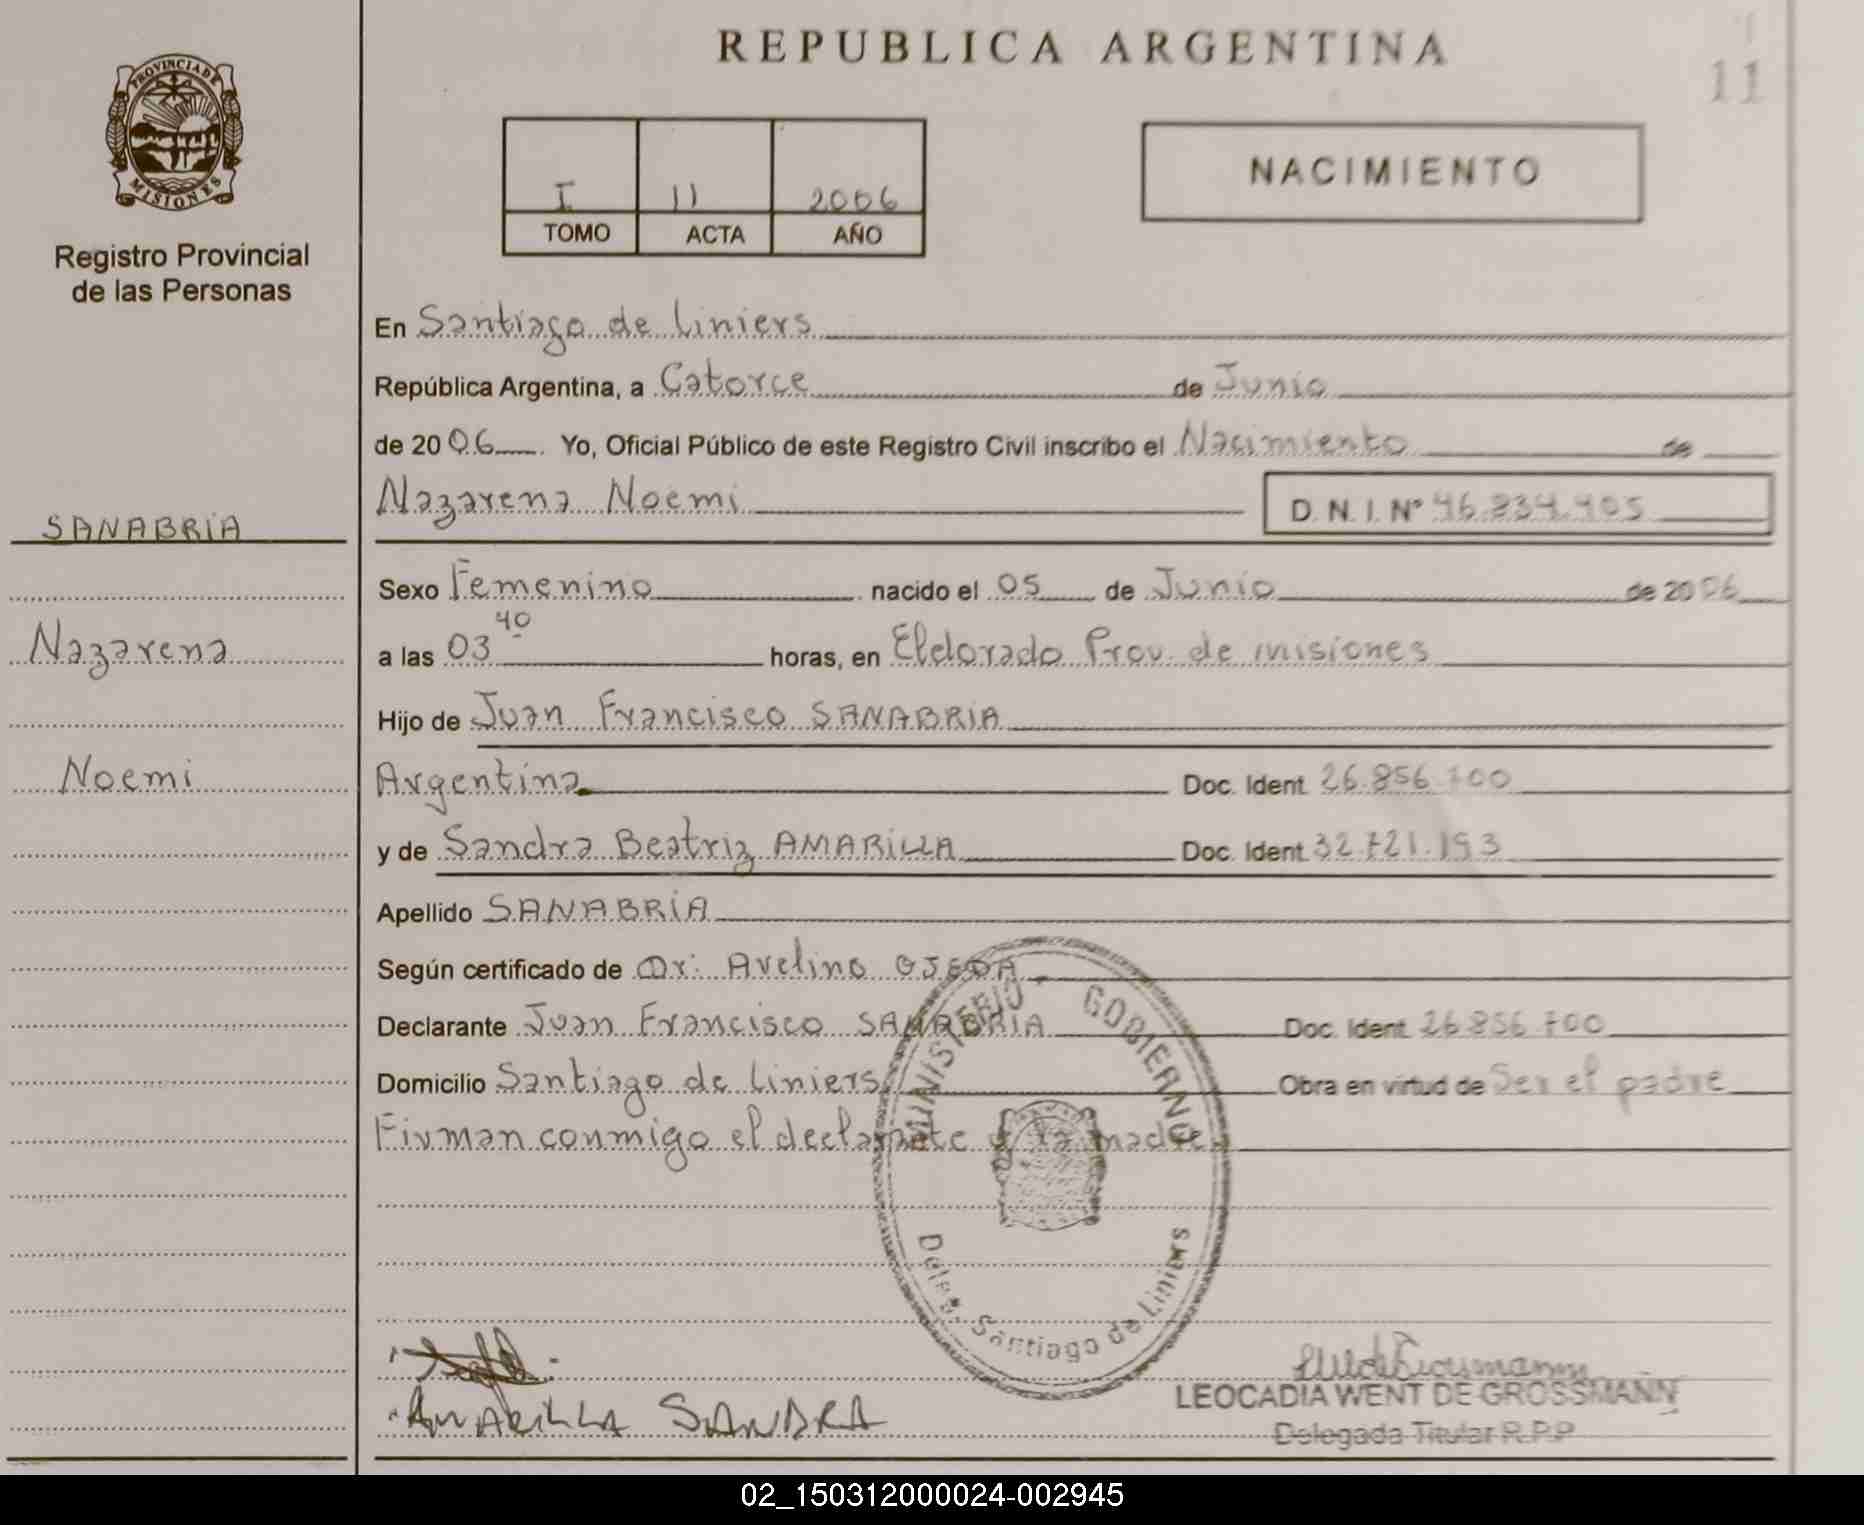 REPUBLICA ARGENTINA
11
PROVINCIA DE
MISIONES
Registro Provincial
de las Personas
I 11 2006
TOMO ACTA AÑO
NACIMIENTO
En Santiago de Liniers
República Argentina, a Catorce de Junio
de 2006. Yo, Oficial Público de este Registro Civil inscribo el Nacimiento de
Nazarena Noemi
D. N. I. Nº 46.834.405
SANABRIA
Sexo Femenino nacido el 05 de Junio de 2006
Nazarena
a las 03 40 horas, en Eldorado Prov. de misiones
Hijo de Juan Francisco SANABRIA
Noemi
Argentina Doc. Ident. 26.856.700
y de Sandra Beatriz AMARILLA Doc. Ident. 32.721.193
Apellido SANABRIA
Según certificado de Dr. Avelino OJEDA
Declarante Juan Francisco SANABRIA Doc. Ident. 26.856.700
Domicilio Santiago de Liniers Obra en virtud de Ser el padre
Firman conmigo el declarante y la madre
MINISTERIO GOBIERNO
Deleg. Santiago de Liniers
AMARILLA SANDRA
LEOCADIA WENT DE GROSSMANN
Delegada Titular R.P.P
02_150312000024-002945